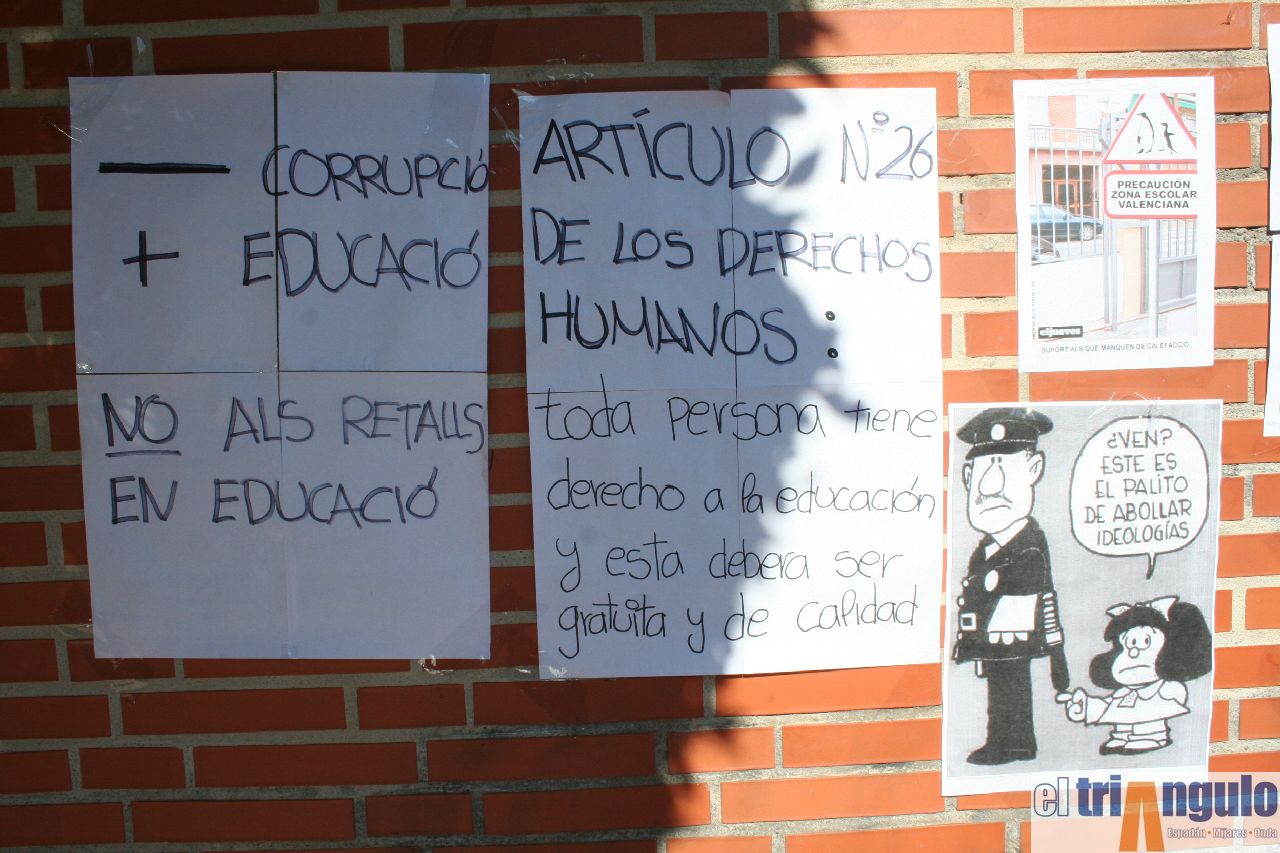 — CORRUPCIÓ
+ EDUCACIÓ
NO ALS RETALLS
EN EDUCACIÓ
ARTÍCULO Nº26
DE LOS DERECHOS
HUMANOS:
toda persona tiene
derecho a la educación
y esta debera ser
gratuita y de calidad
PRECAUCIÓN
ZONA ESCOLAR
VALENCIANA
eljueves
SUPORT ALS QUE MANQUEN DE CALEFACCIO
¿VEN?
ESTE ES
EL PALITO
DE ABOLLAR
IDEOLOGÍAS
el triangulo
Espadán · Mijares · Onda